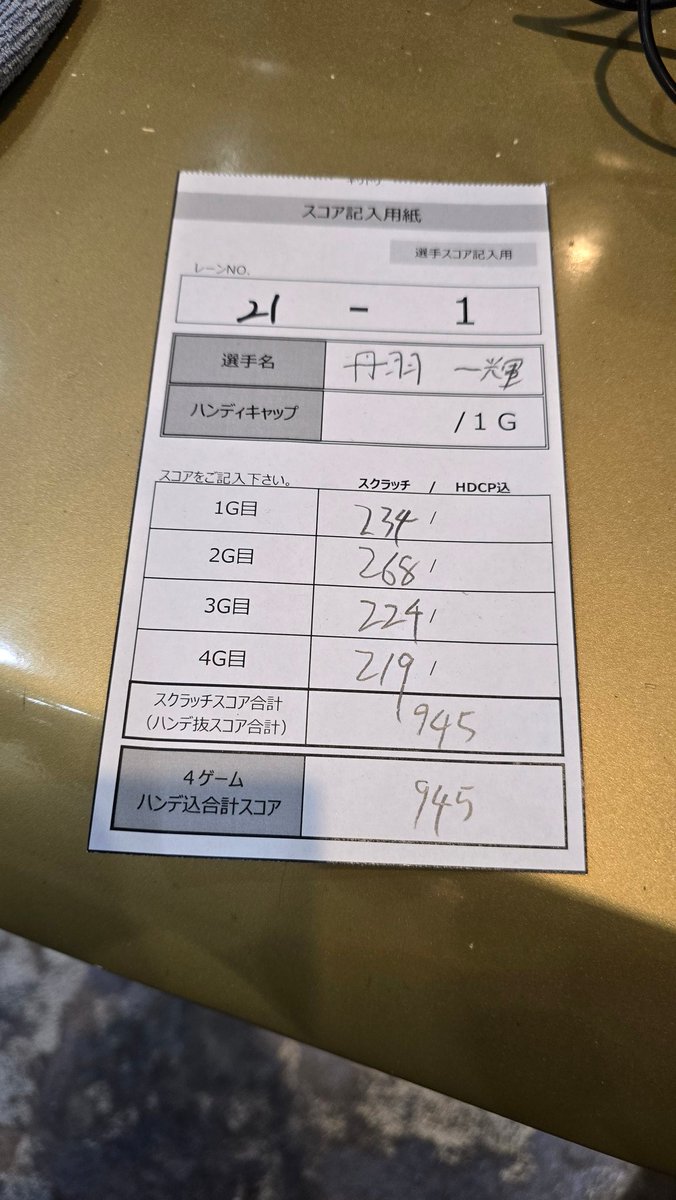 キリトリ
スコア記入用紙
選手スコア記入用
レーンNO.
21 - 1
選手名 丹羽 一輝
ハンディキャップ /1G
スコアをご記入下さい。 スクラッチ / HDCP込
1G目 234 /
2G目 268 /
3G目 224 /
4G目 219 /
スクラッチスコア合計
(ハンデ抜スコア合計) 945
4ゲーム
ハンデ込合計スコア 945